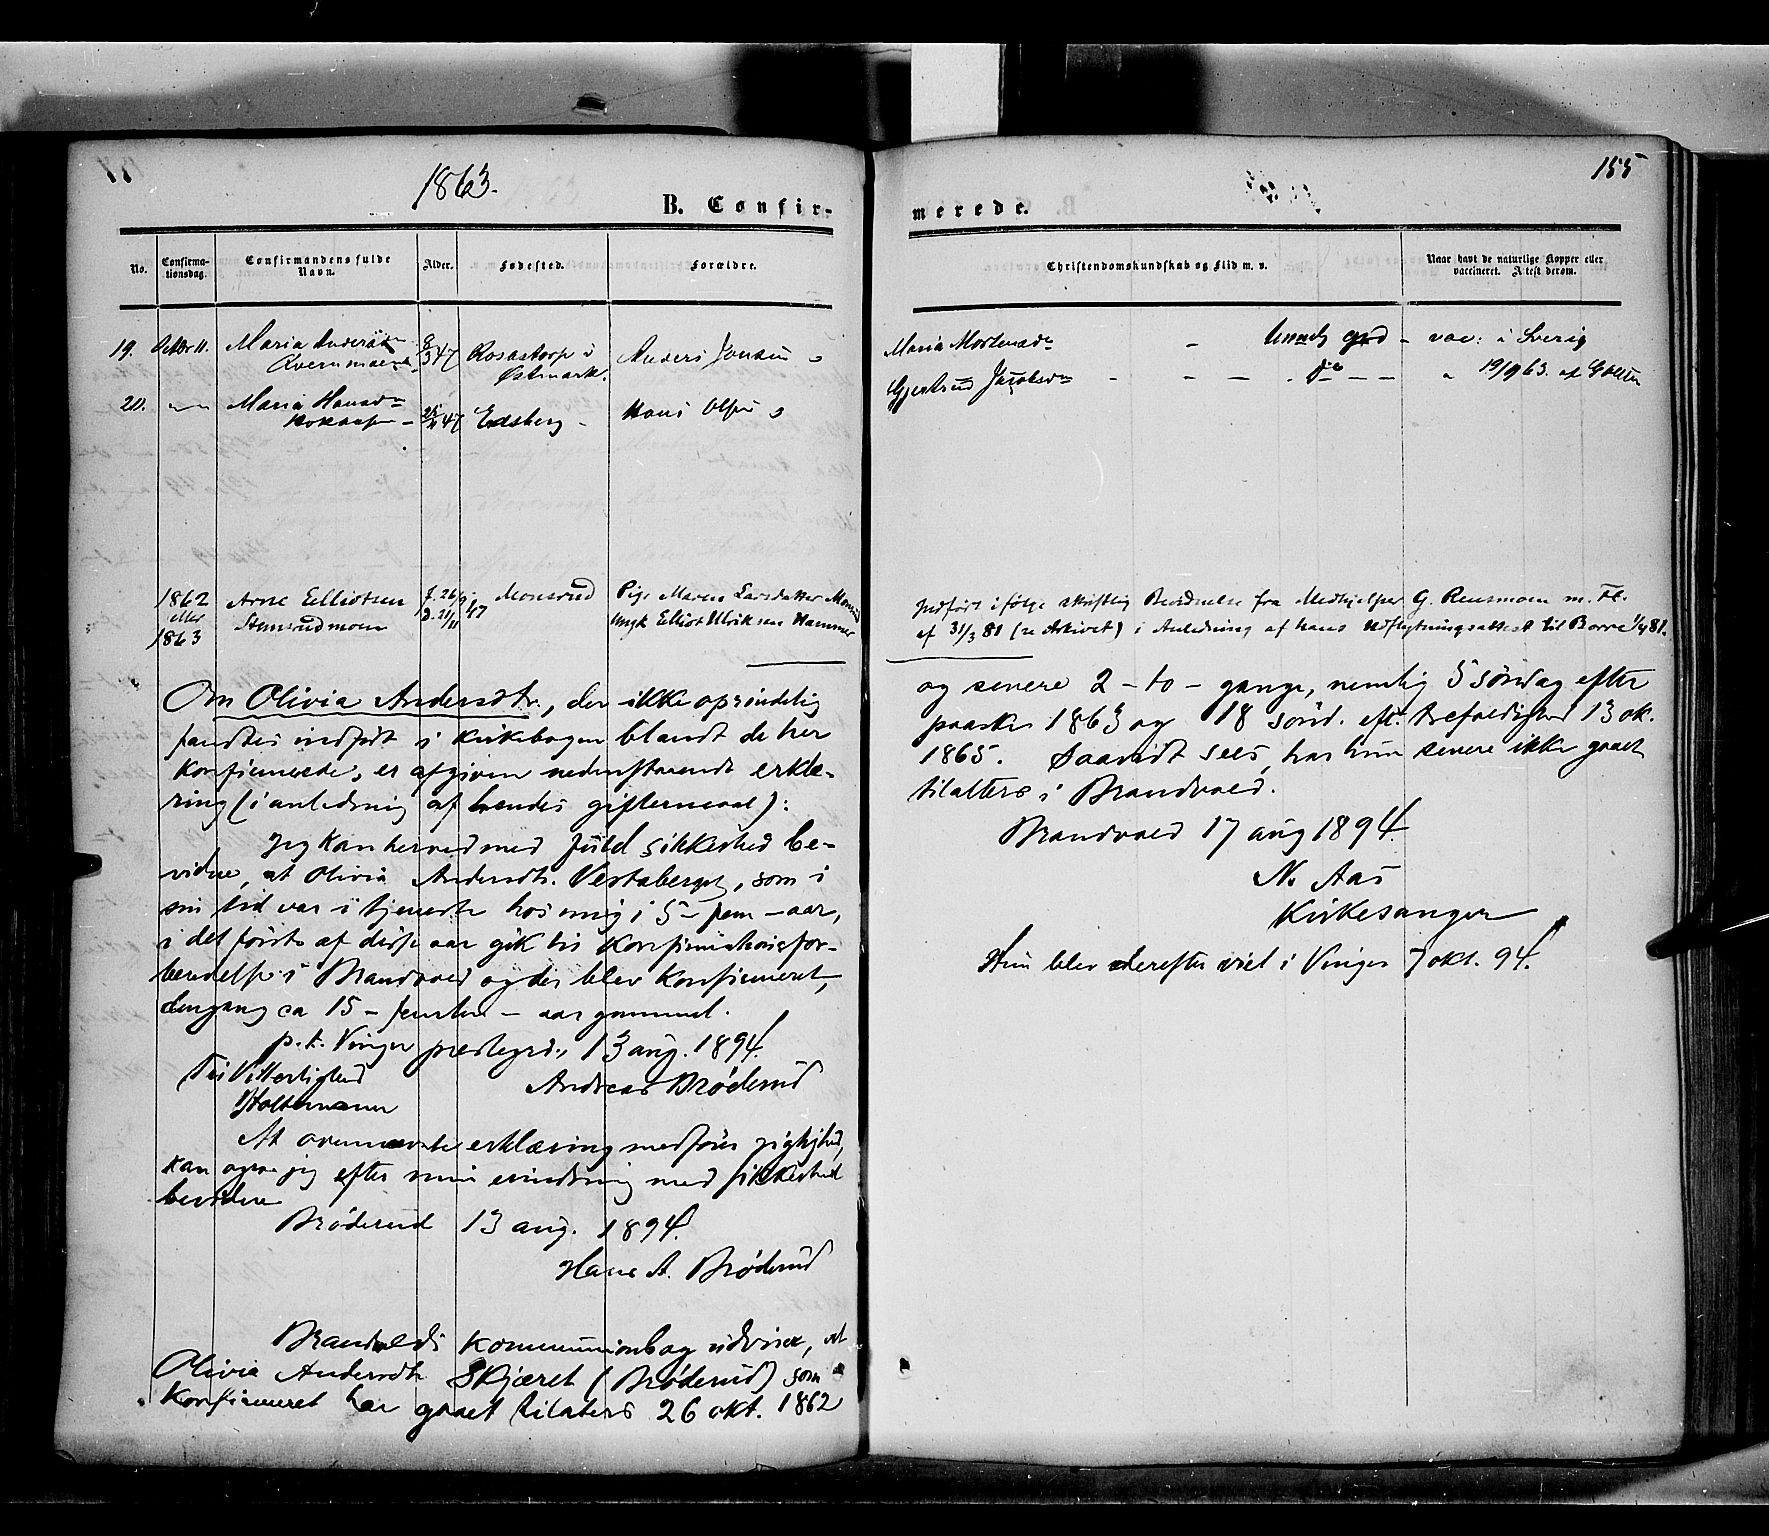 1863.
155
B. Confir-
merede.
No.
Confirma-
tionsdag.
Confirmandens fulde
Navn.
Alder.
Fødested.
Forældre.
Christendomskundskab og Flid m. v.
Naar havt de naturlige Kopper eller
vaccineret. Attest derom.
19. Oktbr 11. Maria Andersdr 8/3 47 Rosastorp i Anders Jonsen o
Østmark.
Maria Mortensdr - - vac: i Sverig
20. Maria Hansdr 47 Edsberg - Hans Olsen o
Gjertrud Jacobsdr - - - do - - " 19/9 63. af
1862 Arne Elliotsen f. 26/9 - 47 Monsrud Pige Maren Larsdatter Monsrud
eller Stensrudmoen d. 21/11 Ungk Elliot Ulriksen Hammer
1863
Indført ifølge skriftlig Bevidnelse fra Medhjelper G. Rensmoen m. Fl.
af 31/3 81 (se Arkivet) i Anledning af hans Udflytningsattest til Borre 1/4 81.
Om Olivia Andersdtr., der ikke oprindelig
fandtes indført i kirkebogen blandt de her
konfirmerede, er afgiven nedenstaaende erklæ-
ring (i anledning af hendes giftermaal):
Jeg kan herved med fuld sikkerhed be-
vidne, at Olivia Andersdtr. Vestaberget, som i
sin tid var i tjeneste hos mig i 5 - fem - aar,
i det første af disse aar gik til konfirmationsfor-
beredelse i Brandvold og der blev konfirmeret,
dengang ca 15 - femten - aar gammel.
p. t. Vinger prestegrd., 13 aug. 1894.
Til Vitterlighed Andreas Brøderud
Holtermann
At ovennævnte erklæring medfører rigtighed,
kan ogsaa jeg efter min erindring med sikkerhed
bevidne
Brøderud 13 aug. 1894.
Hans A. Brøderud
Brandvolds kommunionbog udviser, at
Olivia Andersdtr Skjæret (Brøderud) som
konfirmeret har gaaet tilalters 26 okt. 1862
og senere 2 - to - gange, nemlig 5 søndag efter
paaske 1863 og 18 sønd. eft. trefoldighed 13 ok.
1865. Saavidt sees, har hun senere ikke gaaet
tilalters i Brandvold.
Brandvold 17 aug 1894
N. Aas
Kirkesanger
Hun blev derefter viet i Vinger 7 okt. 94.